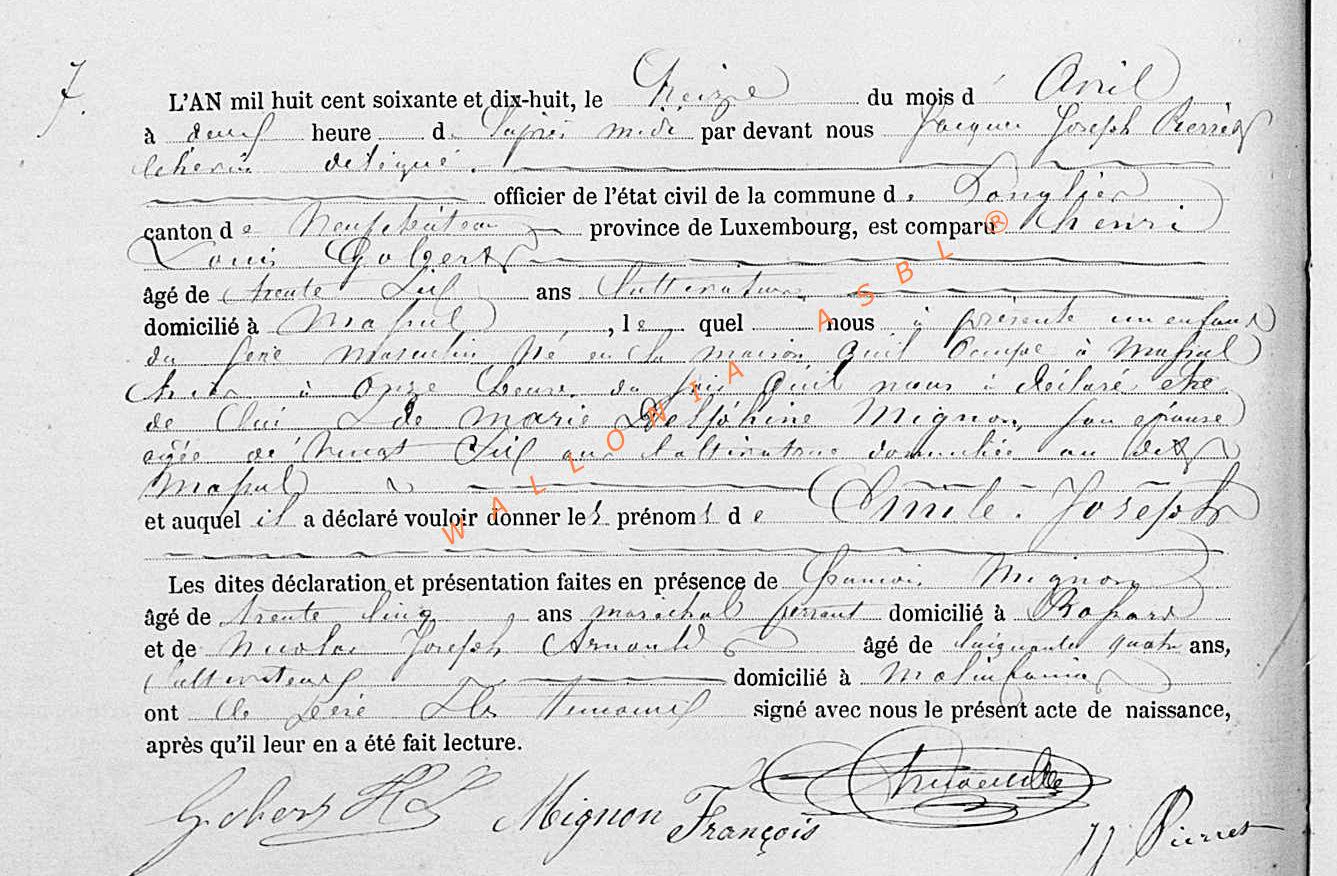 7.
L'AN mil huit cent soixante et dix-huit, le Treize du mois d' Avril
à deux heure d. l'après midi par devant nous Jacques Joseph Pierret
échevin délégué.
officier de l'état civil de la commune de Longlier
canton de Neufchâteau province de Luxembourg, est comparu henri
Louis Gobert
âgé de trente six ans Cultivateur
domicilié à Massul, le quel nous à présenté un enfant
du sexe masculin Né en la maison quil occupe à Massul
hier à onze heure du soir quil nous à déclaré etre
de lui & de marie Delphine Mignon, son épouse
agée de trente six ans Cultivatrice domiciliée au dit
Massul
et auquel il a déclaré vouloir donner les prénoms de Emile. Joseph
Les dites déclaration et présentation faites en présence de François Mignon
âgé de trente cinq ans maréchal ferrant domicilié à
et de Nicolas Joseph Arnould âgé de soixante quatre ans,
Cultivateur domicilié à Molinfaing
ont le père & les témoins signé avec nous le présent acte de naissance,
après qu'il leur en a été fait lecture.
Gobert HL Mignon François
JJ Pierret
WALLONIA ASBL ®